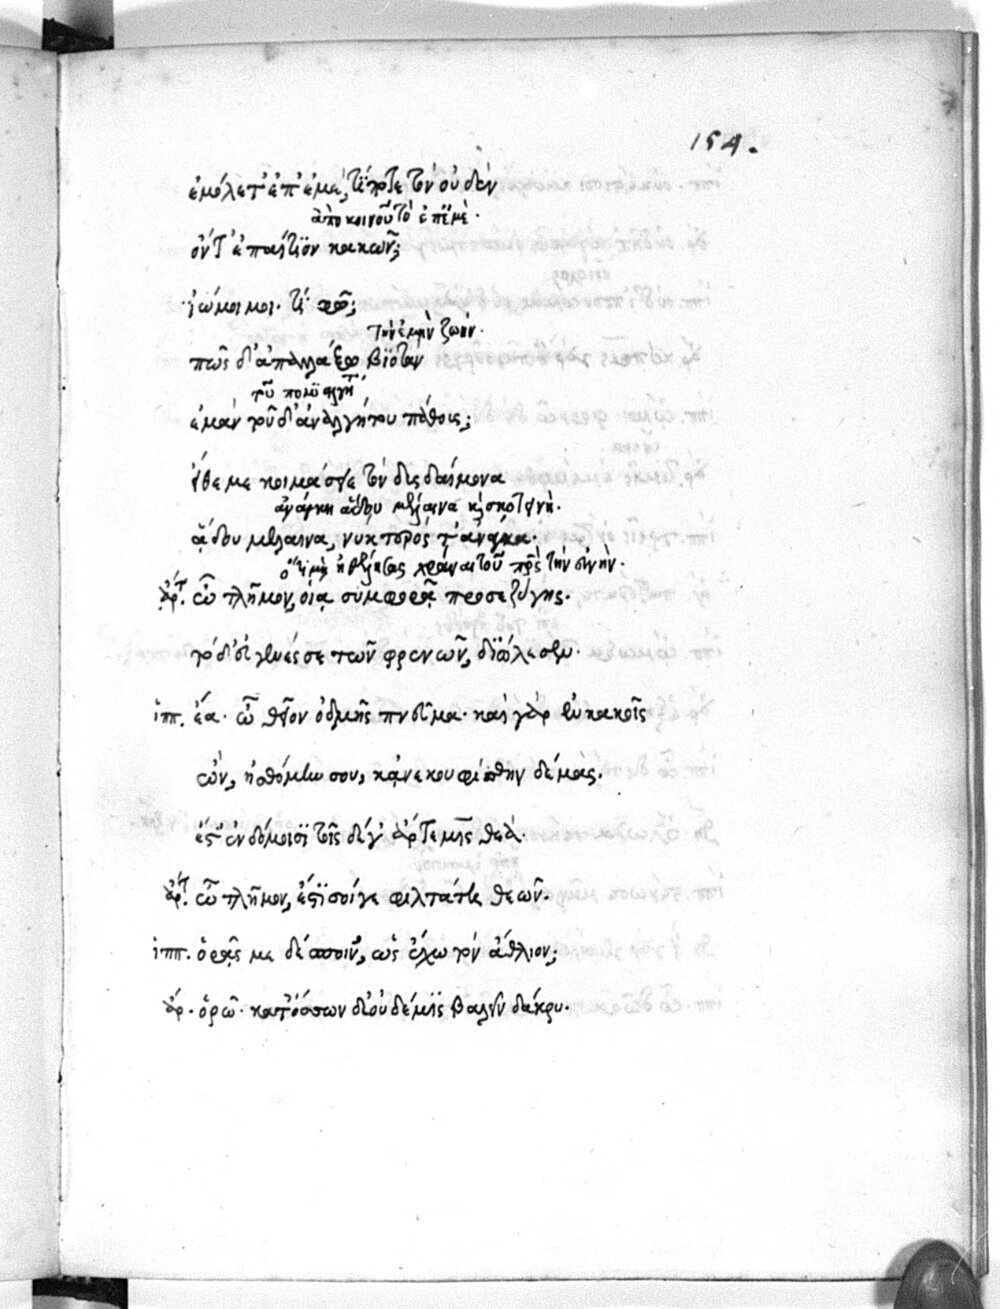 154.
ἐμόλετ' ἐπ' ἐμὲ, τί ποτε τὸν οὐδὲν
ἀπὸ κοινοῦ τὸ ἐπ' ἐμὲ.
ὄντ' ἐπαίτιον κακῶν;
ἰώ μοι μοι. τί φῶ;
τὴν ἐμὴν ζωήν.
πῶς δ' ἀπαλλάξω βιοτὰν
τοῦ πολυαλγῆ
ἐμὰν τοῦδ' ἀναλγήτου πάθους;
εἴθε με κοιμάσειε τὸν δυσδαίμονα
ἀνάγκη ἅδου μέλαινα καὶ σκοτεινὴ.
ἅδου μέλαινα, νύκτορός τ' ἀνάγκα.
ἄρτ. ὦ τλῆμον, οἵᾳ συμφορᾷ προσεζύγης.
τὸ δ' εὐγενές σε τῶν φρενῶν, διώλεσεν.
ἱππ. ἔα. ὦ θεῖον ὀδμῆς πνεῦμα. καὶ γὰρ ἐν κακοῖς
ὢν, ᾐσθόμην σου, κἀνεκουφίσθην δέμας.
ἔστ' ἐν δόμοισι τοῖσδέ γ' ἄρτεμις θεά.
ἄρτ. ὦ τλῆμον, ἔστι σοί γε φιλτάτη θεῶν.
ἱππ. ὁρᾷς με δέσποιν', ὡς ἔχω τὸν ἄθλιον;
ἄρ. ὁρῶ. κατ' ὄσσων δ' οὐ θέμις βαλεῖν δάκρυ.